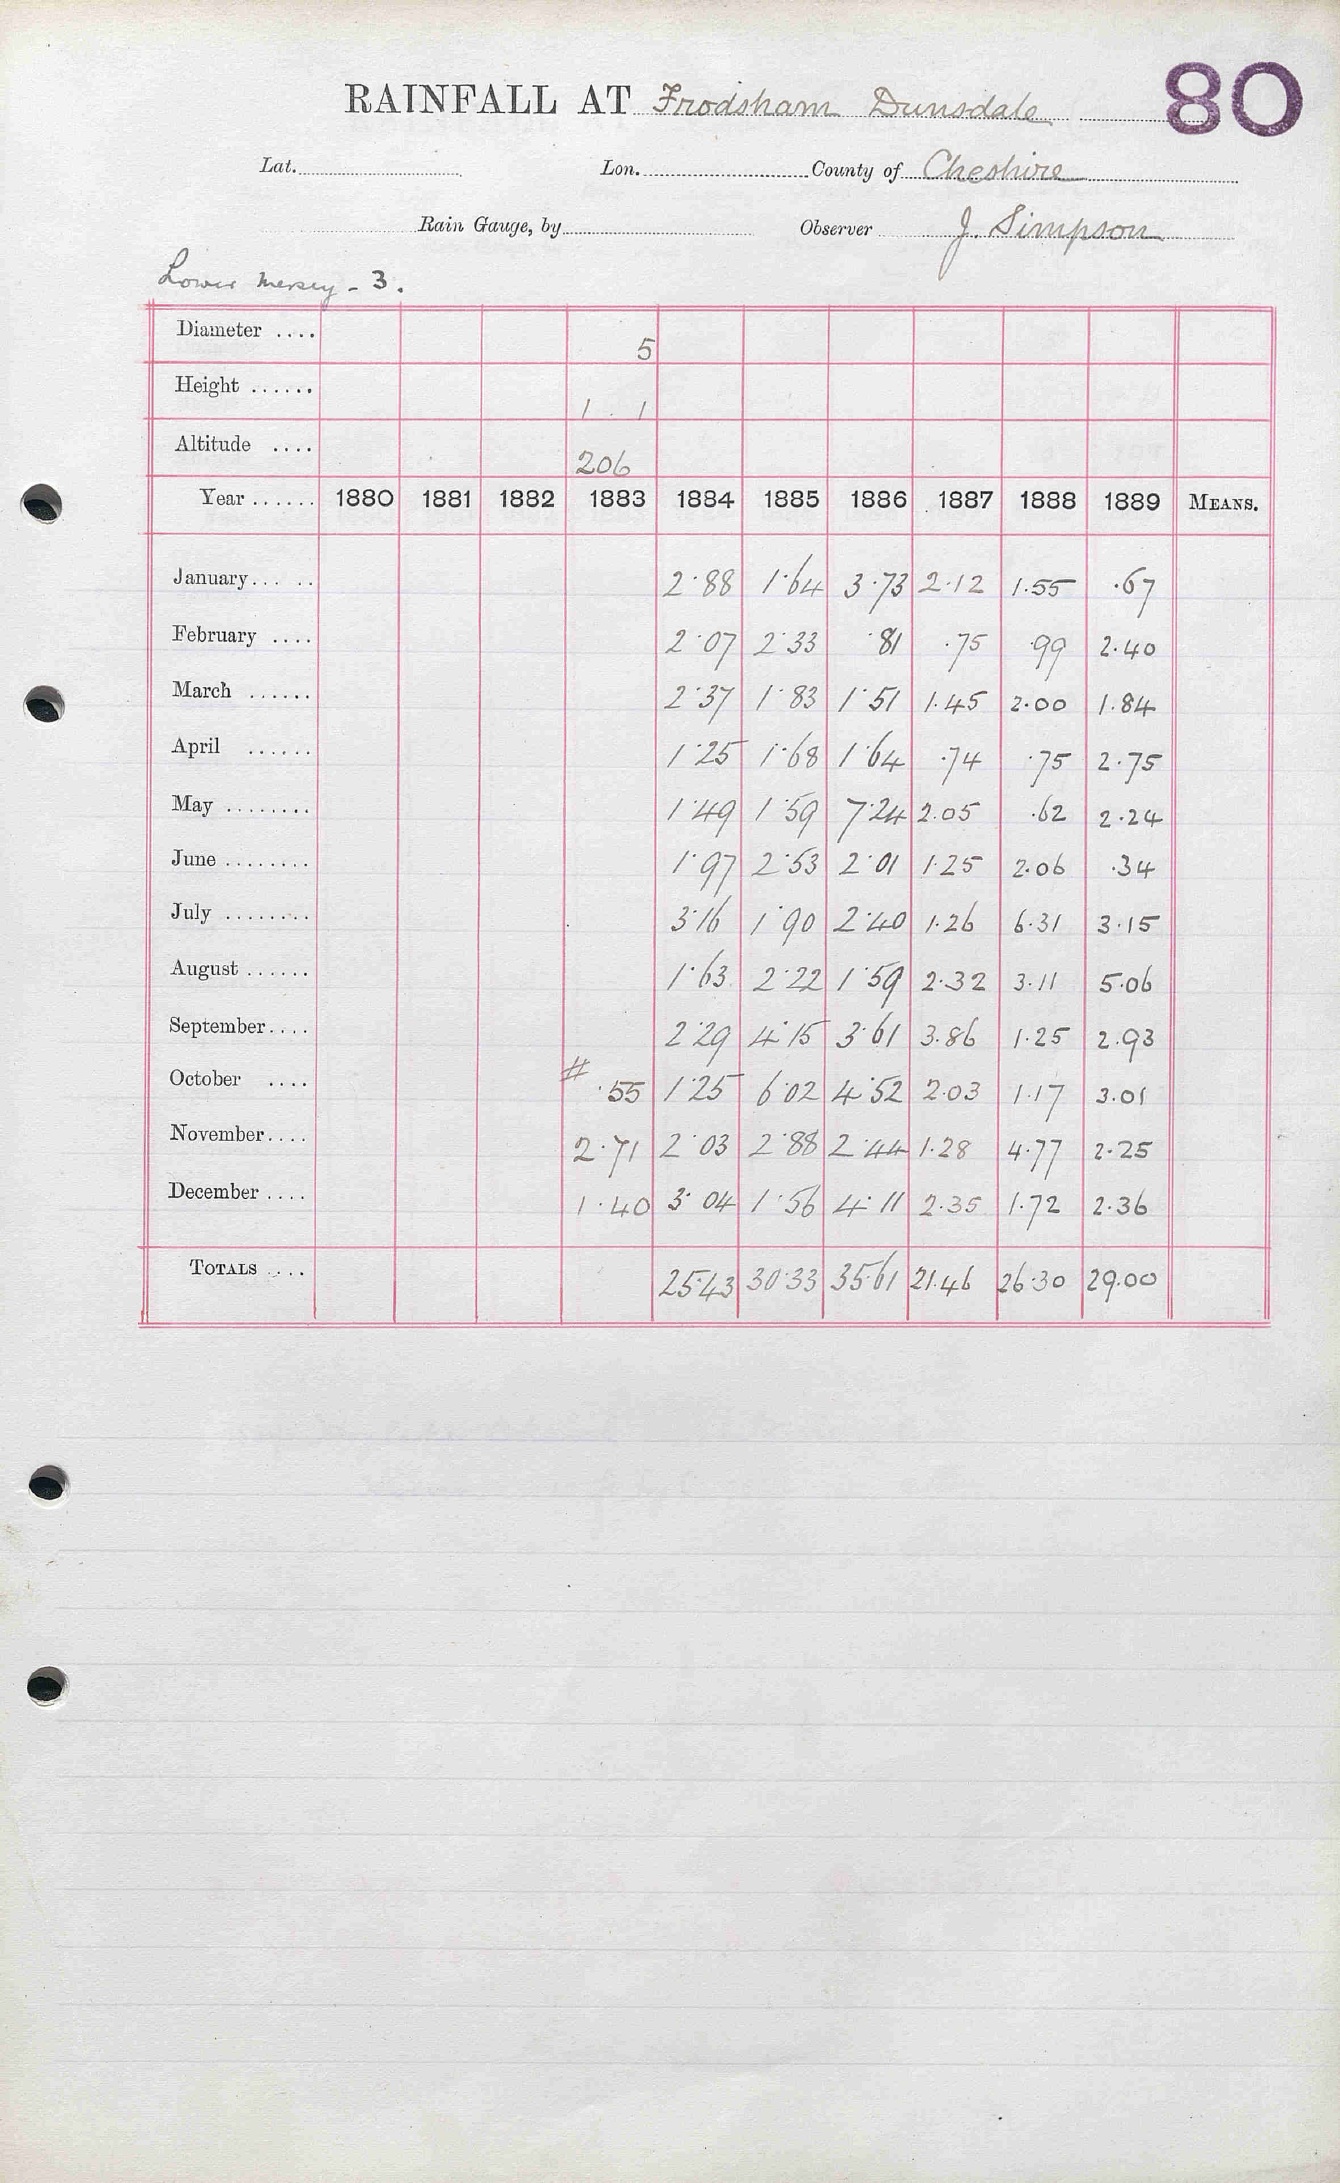 RAINFALL AT Frodsham Dunsdale 80
Lat. Lon. County of Cheshire
Rain Gauge, by Observer J. Simpson
Lower Mersey - 3.
Diameter .... 5
Height ...... 1 . 1
Altitude .... 206
Year ...... 1880 1881 1882 1883 1884 1885 1886 1887 1888 1889 MEANS.
January... .. 2.88 1.64 3.73 2.12 1.55 .67
February .... 2.07 2.33 .81 .75 .99 2.40
March ...... 2.37 1.83 1.51 1.45 2.00 1.84
April ...... 1.25 1.68 1.64 .74 .75 2.75
May ........ 1.49 1.59 7.24 2.05 .62 2.24
June ........ 1.97 2.53 2.01 1.25 2.06 .34
July ........ 3.16 1.90 2.40 1.26 6.31 3.15
August ...... 1.63 2.22 1.59 2.32 3.11 5.06
September.... 2.29 4.15 3.61 3.86 1.25 2.93
October .... # .55 1.25 6.02 4.52 2.03 1.17 3.01
November.... 2.71 2.03 2.88 2.44 1.28 4.77 2.25
December .... 1.40 3.04 1.56 4.11 2.35 1.72 2.36
TOTALS .... 25.43 30.33 35.61 21.46 26.30 29.00